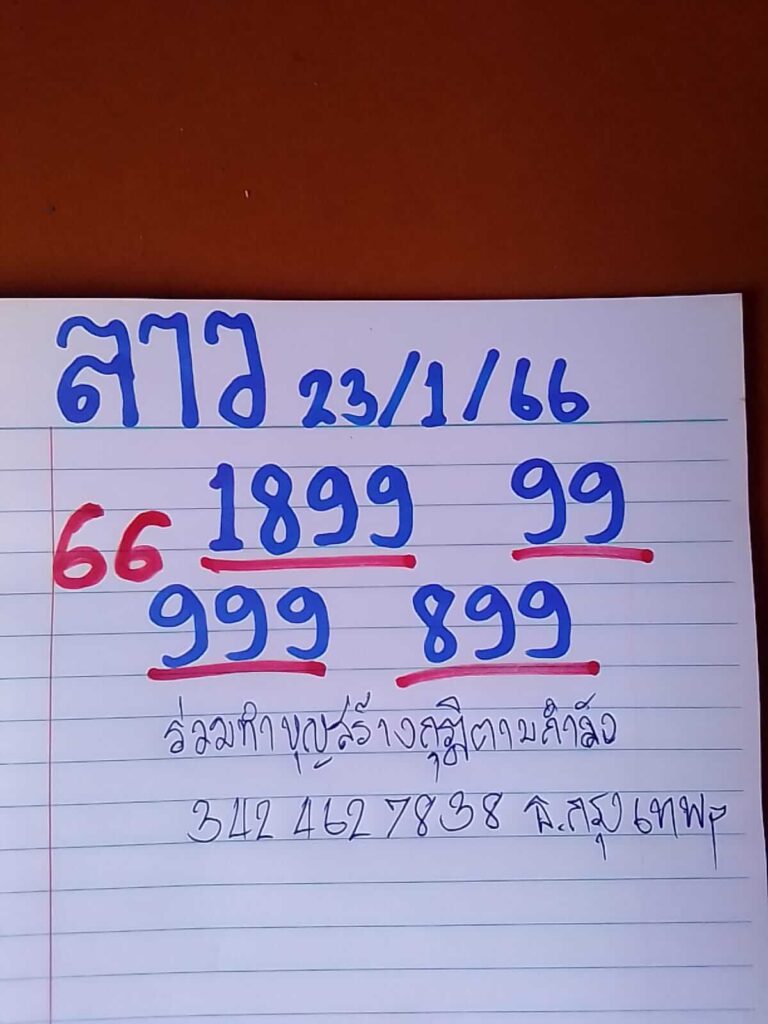 ลาว 23/1/66
66 1899 99
999 899
ร่วมทำบุญสร้างกุฏิตามกำลัง
342 462 7838 ธ.กรุงเทพฯ